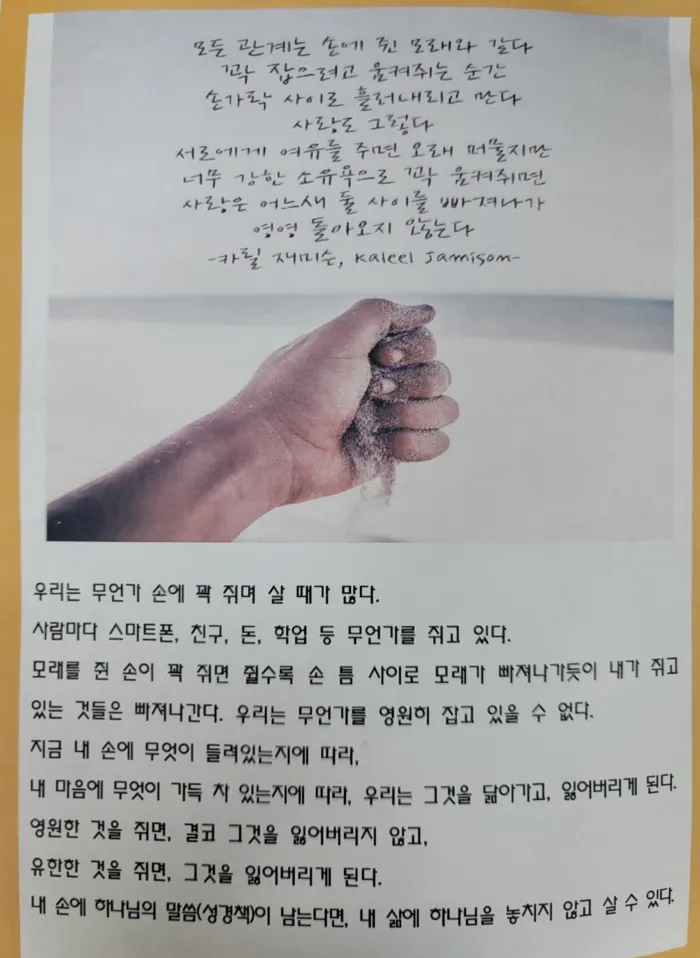 모든 관계는 손에 쥔 모래와 같다
꽉 잡으려고 움켜쥐는 순간
손가락 사이로 흘러내리고 만다
사랑도 그렇다
서로에게 여유를 주면 오래 머물지만
너무 강한 소유욕으로 꽉 움켜쥐면
사랑은 어느새 둘 사이를 빠져나가
영영 돌아오지 않는다
-카릴 재미슨, Kaleel Jamison-
우리는 무언가 손에 꽉 쥐며 살 때가 많다.
사람마다 스마트폰, 친구, 돈, 학업 등 무언가를 쥐고 있다.
모래를 쥔 손이 꽉 쥐면 쥘수록 손 틈 사이로 모래가 빠져나가듯이 내가 쥐고
있는 것들은 빠져나간다. 우리는 무언가를 영원히 잡고 있을 수 없다.
지금 내 손에 무엇이 들려있는지에 따라,
내 마음에 무엇이 가득 차 있는지에 따라, 우리는 그것을 닮아가고, 잃어버리게 된다.
영원한 것을 쥐면, 결코 그것을 잃어버리지 않고,
유한한 것을 쥐면, 그것을 잃어버리게 된다.
내 손에 하나님의 말씀(성경책)이 남는다면, 내 삶에 하나님을 놓치지 않고 살 수 있다.